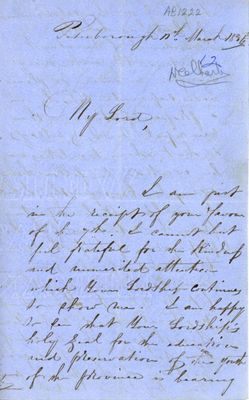 AB1222
Peterborough 12th March
My Lord,
I am just
in the receipt of your favor
of the I cannot but
feel grateful for the kindness
and unmerited attention
which Your Lordship continues
to show me. I am happy
to see that Your Lordship's
holy zeal for the education
and preservation of the youth
of the Province is bearing